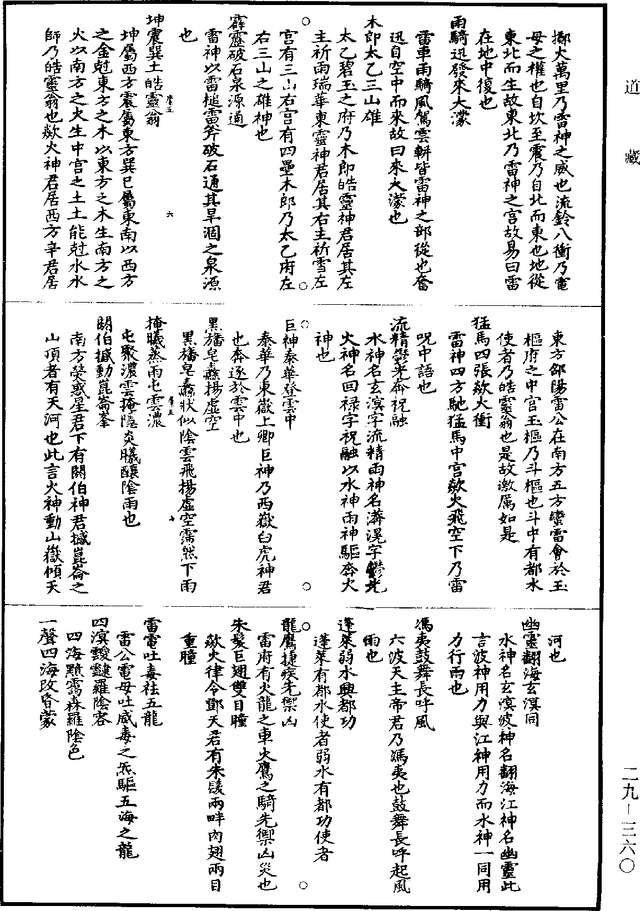 道藏
擲火萬里乃雷神之威也流鈴八衝乃電
母之權也自坎至震乃自北而東也地從
東北而生故東北乃雷神之宫故易曰雷
在地中復也
雨騎迅發來大濛
雷車雨騎風駕雲軿皆雷神之部從也奮
迅自空中而來故曰來大濛也
木郎太乙三山雄
太乙碧玉之府乃木郎皓靈神君居其左
主祈雨瑞華東靈神君居其右主祈雪左
宫有三山右宫有四壘木郎乃太乙府左
右三山之雄神也
霹靂破石泉源通
雷神以雷槌雷斧破石通其旱涸之泉源
也
坤震巽土皓靈翁
坤屬西方震屬東方巽巳屬東南以西方
之金尅東方之木以東方之木生南方之
火以南方之火生中宫之土土能尅水水
師乃皓靈翁也歘火神君居西方辛君居
東方邵陽雷公在南方五方蠻雷會於玉
樞府之中宫玉樞乃斗樞也斗中有都水
使者乃皓靈翁也是故激厲如是
猛馬四張歘火衝
雷神四方馳猛馬中宫歘火飛空下乃雷
咒中語也
流精鬱光奔祝融
水神名玄溟字流精雨神名濟滉字鬱光
火神名回禄字祝融以水神雨神驅奔火
神也
巨神泰華登雲中
泰華乃東嶽上卿巨神乃西嶽白虎神君
也奔逐於雲中也
黑旛皂纛揚虛空
黑旛皂纛狀似陰雲飛揚虛空霈然下雨
掩曦蒸雨屯雲濃
屯聚濃雲掩隱炎曦釀陰雨也
閼伯撼動崑崙峯
南方熒惑星君下有閼伯神君撼崑崙之
山頂者有天河也此言火神動山嶽傾天
河也
幽靈翻海玄溟同
水神名玄溟波神名翻海江神名幽靈此
言波神用力與江神用力而水神一同用
力行雨也
馮夷鼓舞長呼風
六波天主帝君乃馮夷也鼓舞長呼起風
雨也
蓬萊弱水興都功
蓬萊有都水使者弱水有都功使者
龍鷹捷疾先禦凶
雷府有火龍之車火鷹之騎先禦凶災也
朱髮巨翅雙目瞳
歘火律令鄧天君有朱髮兩畔肉翅兩目
重瞳
雷電吐毒驅五龍
雷公電母吐威毒之炁驅五海之龍
四溟靉靆羅陰容
四海黯靄森羅陰色
一聲四海改昏蒙
二九—三六〇